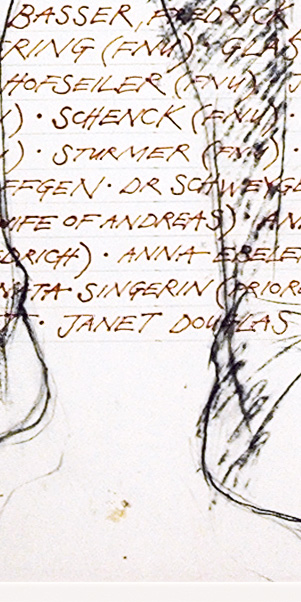 BASSER, FREDRICK
RING (FNU) · GLAS
HOFSEILER (FNU) · J
) · SCHENCK (FNU) ·
) · STURMER (FNU) ·
EFFGEN · DR SCHWEYG
WIFE OF ANDREAS) · AN
DRICH) · ANNA EBELE
TA SINGERIN (PRIOR
· JANET DOUGLAS